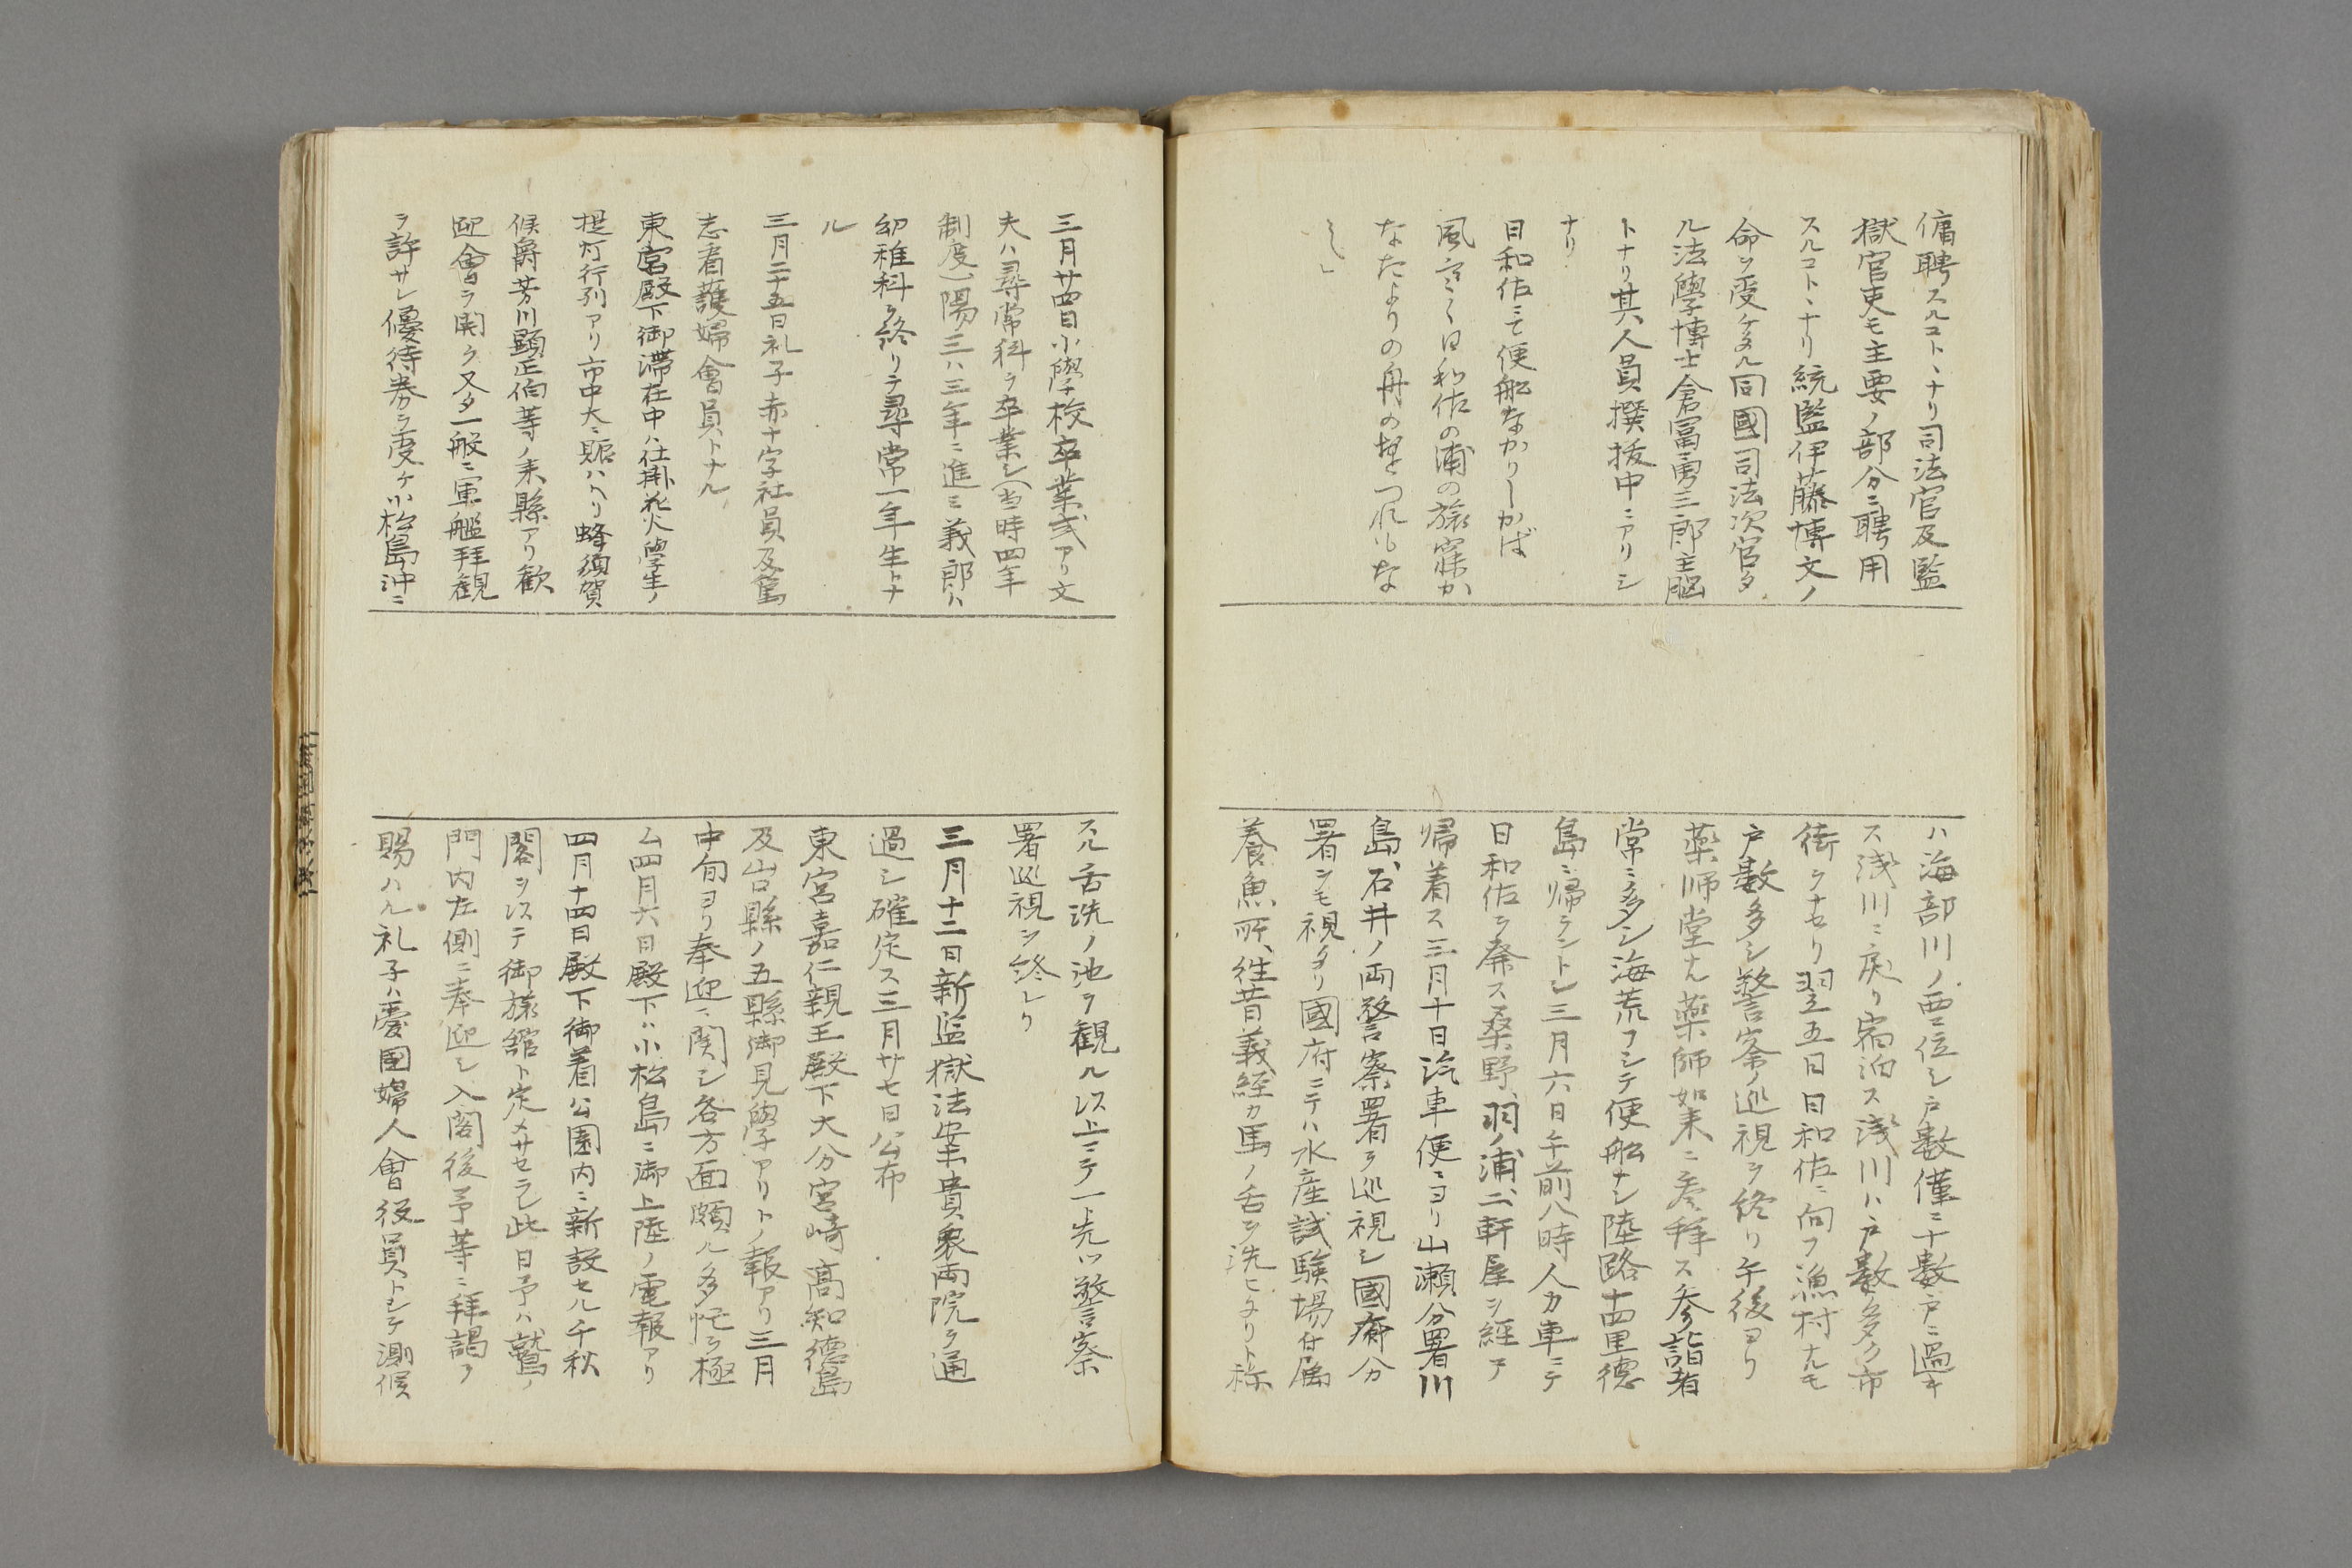 傭聘スルコトヽナリ司法官及監
獄官吏モ主要ノ部分ニ聘用
スルコトヽナリ統監伊藤博文ノ
命ヲ受ケタル同國司法次官タ
ル法學博士倉冨勇三郎主脳
トナリ其人員撰抜中ニアリシ
ナリ
日和佐ニて便船なかりしかば
風
日和佐の浦の旅寐か
なたよりの舟の
つれもな
し」
ハ海部川ノ西ニ位シ戸數僅ニ十數戸ニ過キ
ス浅川ニ戻リ宿泊ス浅川ハ戸數多ク市
街ヲナセリ翌五日日和佐ニ向フ漁村ナルモ
戸數多シ警察ノ巡視ヲ終リ午後ヨリ
薬師堂ナル薬師如来ニ参拜ス参詣者
常ニ多シ海荒フシテ便船ナシ陸路十四里徳
島ニ帰ラントシ三月六日午前八時人力車ニテ
日和佐ヲ発ス桑野、羽ノ浦、二軒屋ヲ経テ
帰着ス三月十日汽車便ニヨリ山瀬分署川
島、石井ノ両警察署ヲ巡視シ國府分
署ヲモ視タリ國府ニテハ水産試験場付属
養魚所、往昔義経カ馬ノ舌ヲ洗ヒタリト称
三月廿四日小學校卒業式アリ文
夫ハ尋常科ヲ卒業シ(当時四年
制度)陽三ハ三年ニ進ミ義郎ハ
幼稚科ヲ終リテ尋常一年生トナ
ル
三月二十五日礼子赤十字社員及篤
志看護婦會員トナル
東宮殿下御滞在中ハ仕掛花火學生ノ
提灯行列アリ市中大ニ賑ハヘリ蜂須賀
候爵芳川顕正伯等ノ来縣アリ歓
迎會ヲ開ク又タ一般ニ軍艦拜観
ヲ許サレ優待券ヲ受ケ小松島沖ニ
スル舌洗ノ池ヲ観ル以上ニテ一ト先ツ警察
署巡視ヲ終レリ
三月十二日新監獄法案貴衆両院ヲ通
過シ確定ス三月廿七日公布
東宮嘉仁親王殿下大分宮崎高知徳島
及山口縣ノ五縣御見學アリトノ報アリ三月
中旬ヨリ奉迎ニ関シ各方面頗ル多忙ヲ極
ム四月六日殿下ハ小松島ニ御上陸ノ電報アリ
四月十四日殿下御着公園内ニ新設セル千秋
閣ヲ以テ御旅舘ト定メサセラレ此日予ハ鷲ノ
門内左側ニ奉迎シ入閣後予等ニ拜謁ヲ
賜ハル礼子ハ愛國婦人會役員トシテ測候